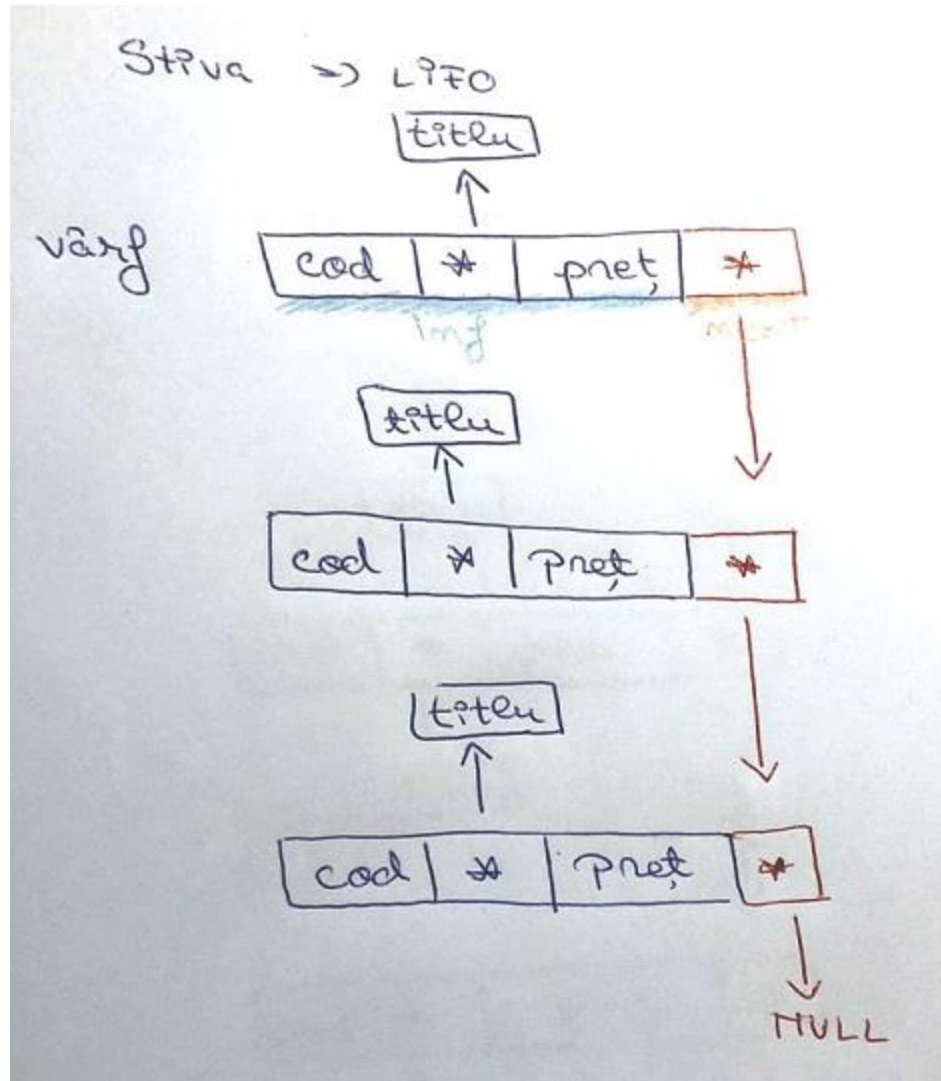 Stiva => LIFO
titlu
vârf
cod * preț *
inf next
titlu
cod * preț *
titlu
cod * preț *
NULL